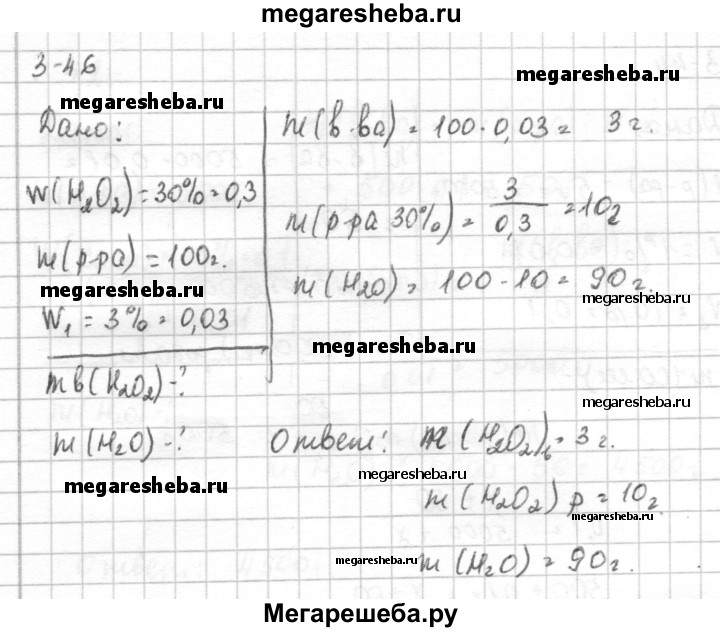 megaresheba.ru
3-46
megaresheba.ru
Дано:
megaresheba.ru
W(H₂O₂) = 30% = 0,3
m(р-ра) = 100г.
megaresheba.ru
W₁ = 3% = 0,03
m в(H₂O₂) - ?
m(H₂O) - ?
megaresheba.ru
m(в-ва) = 100·0,03 = 3г.
m(р-ра 30%) = 3/0,3 = 10г
m(H₂O) = 100-10 = 90г.
megaresheba.ru
megaresheba.ru
megaresheba.ru
Ответ: m(H₂O₂)в = 3г.
megaresheba.ru
m(H₂O₂)р = 10г.
megaresheba.ru
megaresheba.ru
m(H₂O) = 90г.
Мегарешеба.ру